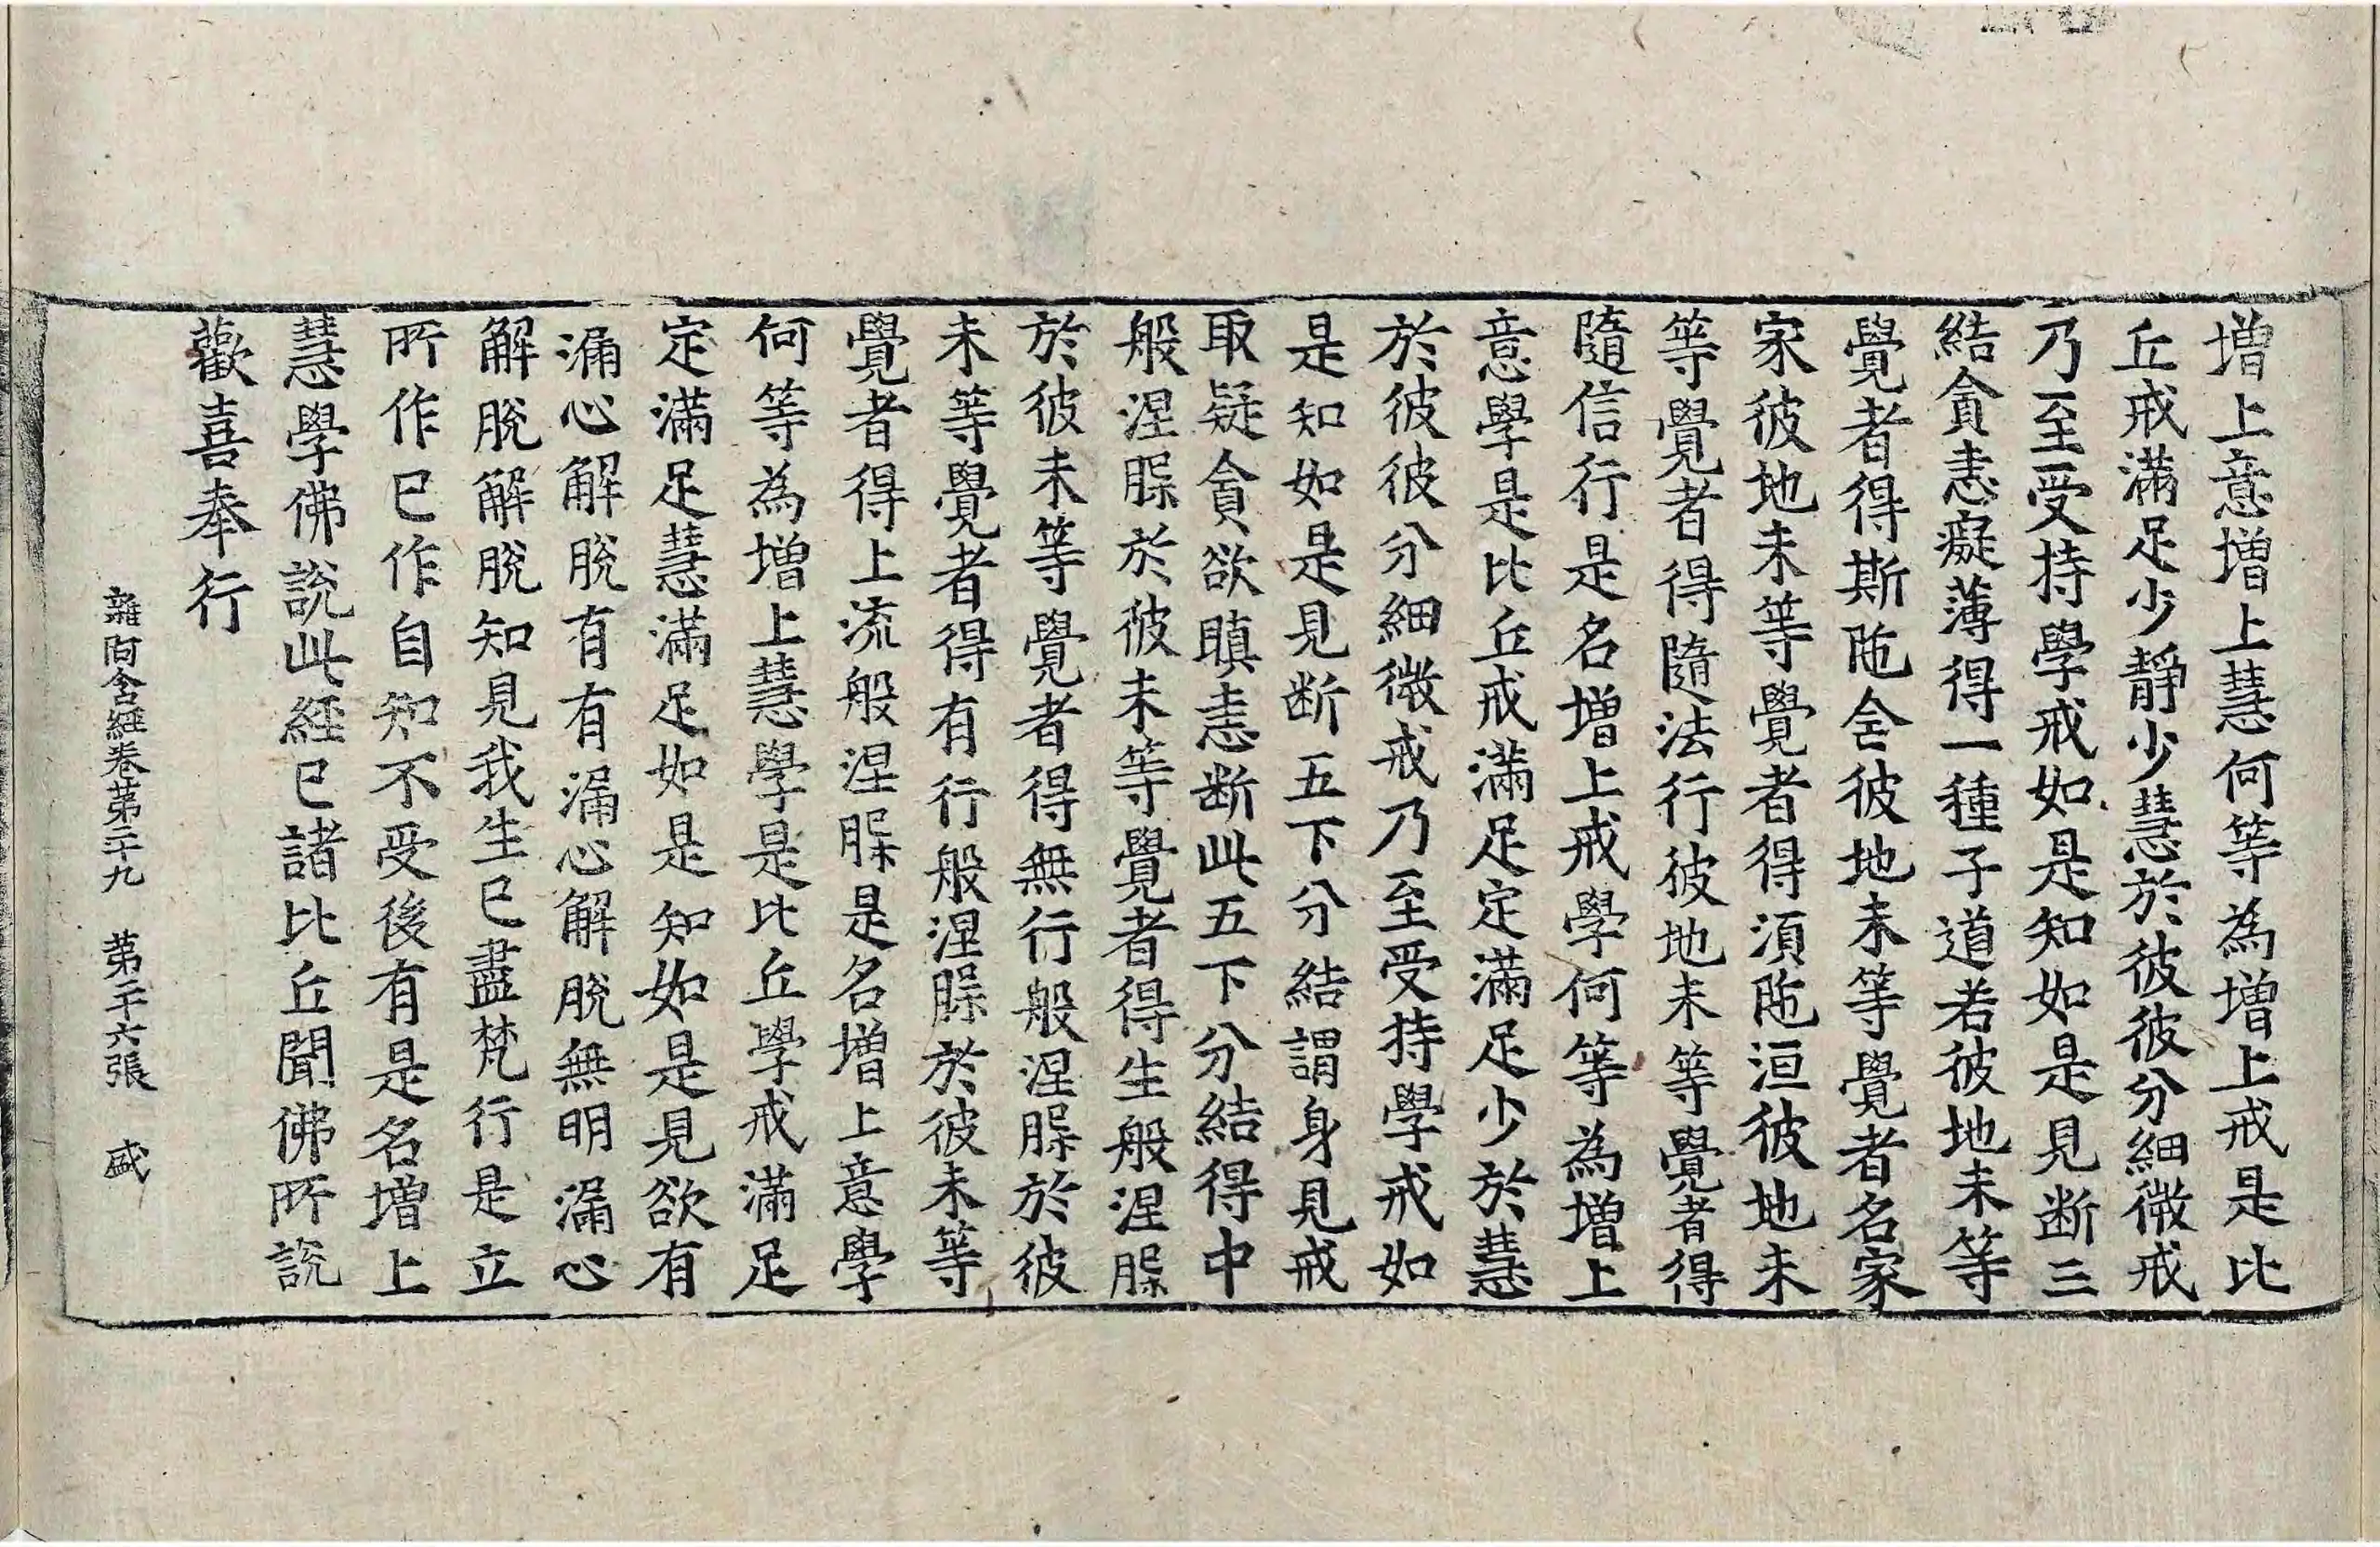 増上意増上慧何等為増上戒是比
丘戒滿足少靜少慧於彼彼分細微戒
乃至受持學戒如是知如是見断三
結貪恚癡薄得一種子道若彼地未等
覺者得斯陁含彼地未等覺者名家
家彼地未等覺者得湏陁洹彼地未
等覺者得隨法行彼地未等覺者得
隨信行是名増上戒學何等為増上
意學是比丘戒滿足定滿足少於慧
於彼彼分細微戒乃至受持學戒如
是知如是見断五下分結謂身見戒
取疑貪欲瞋恚断此五下分結得中
般涅槃於彼未等覺者得生般涅槃
於彼未等覺者得無行般涅槃於彼
未等覺者得有行般涅槃於彼未等
覺者得上流般涅槃是名増上意學
何等為増上慧學是比丘學戒滿足
定滿足慧滿足如是知如是見欲有
漏心解脫有有漏心解脫無明漏心
解脫解脫知見我生已盡梵行是立
所作已作自知不受後有是名増上
慧學佛說此經已諸比丘聞佛所說
歡喜奉行
雜阿含經卷第二十九　第二十六張　盛